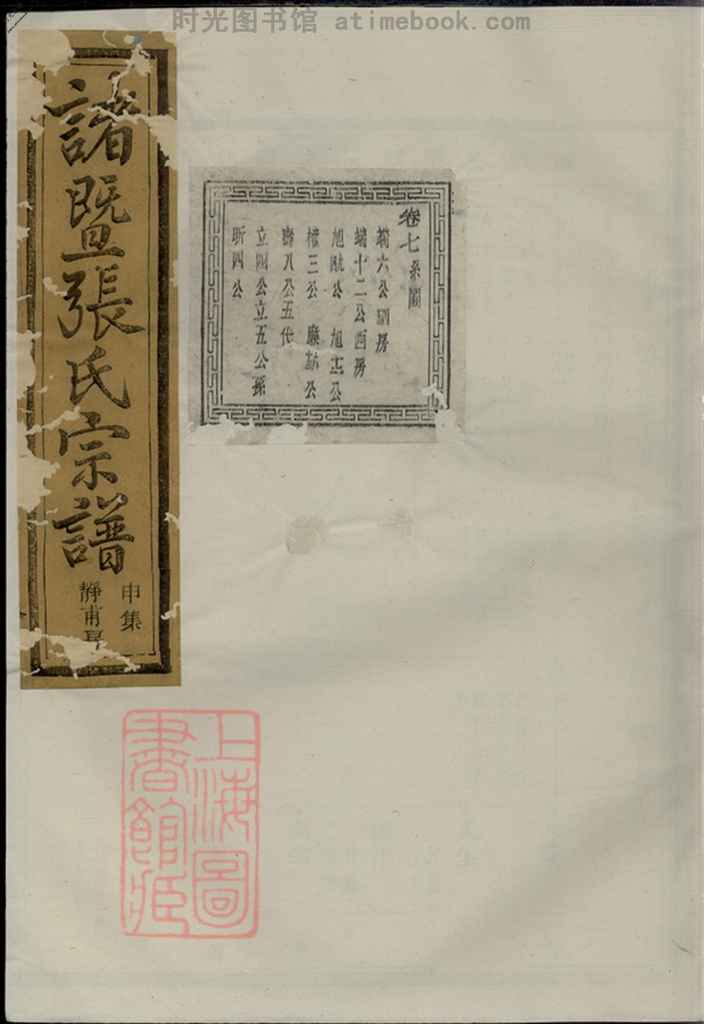 时光图书馆 atimebook.com
諸暨張氏宗譜
申集
靜甫
卷七系圖
端六公國房
端十二公西房
旭 公 旭 公
權三公 公
八公五代
立四公立五公孫
昕四公
上海圖
書館藏